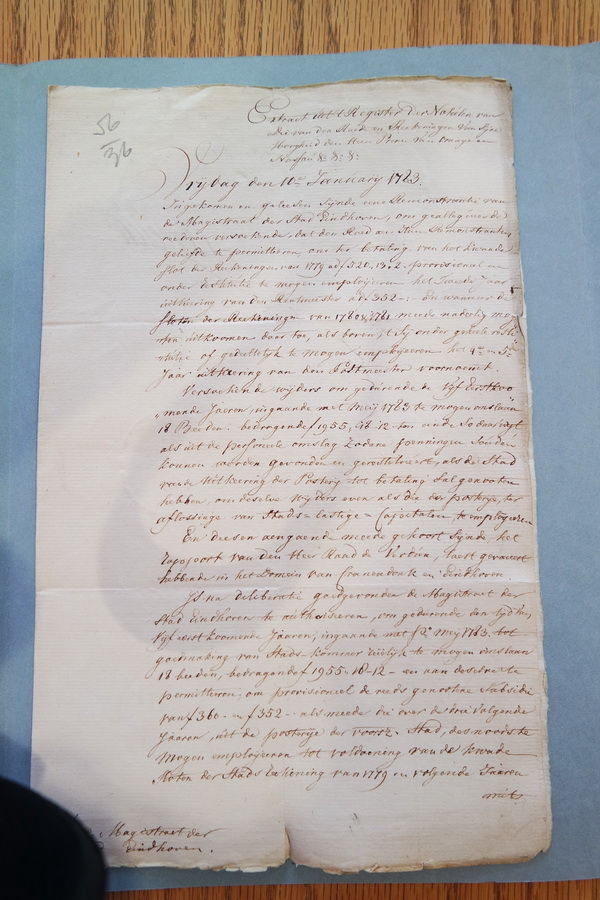 56
36
Extract uit 't Register der Notulen van
die van den Raede en Reekeningen van Syne
Hoogheid den Heere Prince van Orange en
Nassau &c &c &c
Vrijdag den 10en January 1783.
Ingekomen en geleesen Synde eene Remonstrantie van
de Magistraat der Stad Eindhoven, om geallegueerde
reedenen versoekende, dat den Raed aan Hun Remonstranten
geliefde te permitteren, om ter betaling van het kwaade
Slot der Reekeningen van 1779 ad f 520.13.2. provisioneel en
onder restitutie te mogen employeeren het tweede Jaar
uitkering van den Rentmeester ad f 352-:- en wanneer de
Sloten der Reekeningen van 1780 & 1781 meede nadeelig mog-
ten uitkomen daar toe, als boven, 't Sij onder geheele resti-
tutie of gedeeltelyk te mogen employeeren het 4e en 5e
Jaar uitkeering van den Postmeester voornoemt.
Versoekende wyders om geduurende de Vyf Eerstkoo
mende Jaaren, ingaande met Meij 1783 te mogen omslaan
18 Beeden, bedragende f 1955,18-12- ten einde So daar uyt
als uit de personeele omslag Zodane penningen Souden
konnen werden gevonden en gerestitueert, als de Stad
van de uitkeering der Postery tot betaling Sal genooten
hebben, om deselve wyders even als die der posterye, ter
aflossinge van Stads-lastige Capitaelen te employeeren
En deesen aengaende meede gehoort Synde, het
Rapport van den Heer Raad de
hebbende in het Domein van Cranendonk en Eindhoven.
Is na deliberatie goedgevonden de Magistraat der
Stad Eindhoven te authoriseren, om geduurende den tyd van
Vyf eerstkoomende Jaaren, ingaande met P Mey 1783. tot
goedmaking van Stads-kommer Jaarlyk te mogen omslaan
18 beeden, bedragende f 1955-18-12- en aan deselve te
permitteren, om provisioneel de reeds genootene Subsidie
van f 360- en f 352-:- als meede die over de drie volgende
Jaaren, uit de posterye der voorsz. Stad, des noods te
mogen employeeren tot voldoening van de kwade
Sloten der Stads Rekening van 1779 en volgende Jaaren
mits
Magistraet der
Eindhoven.